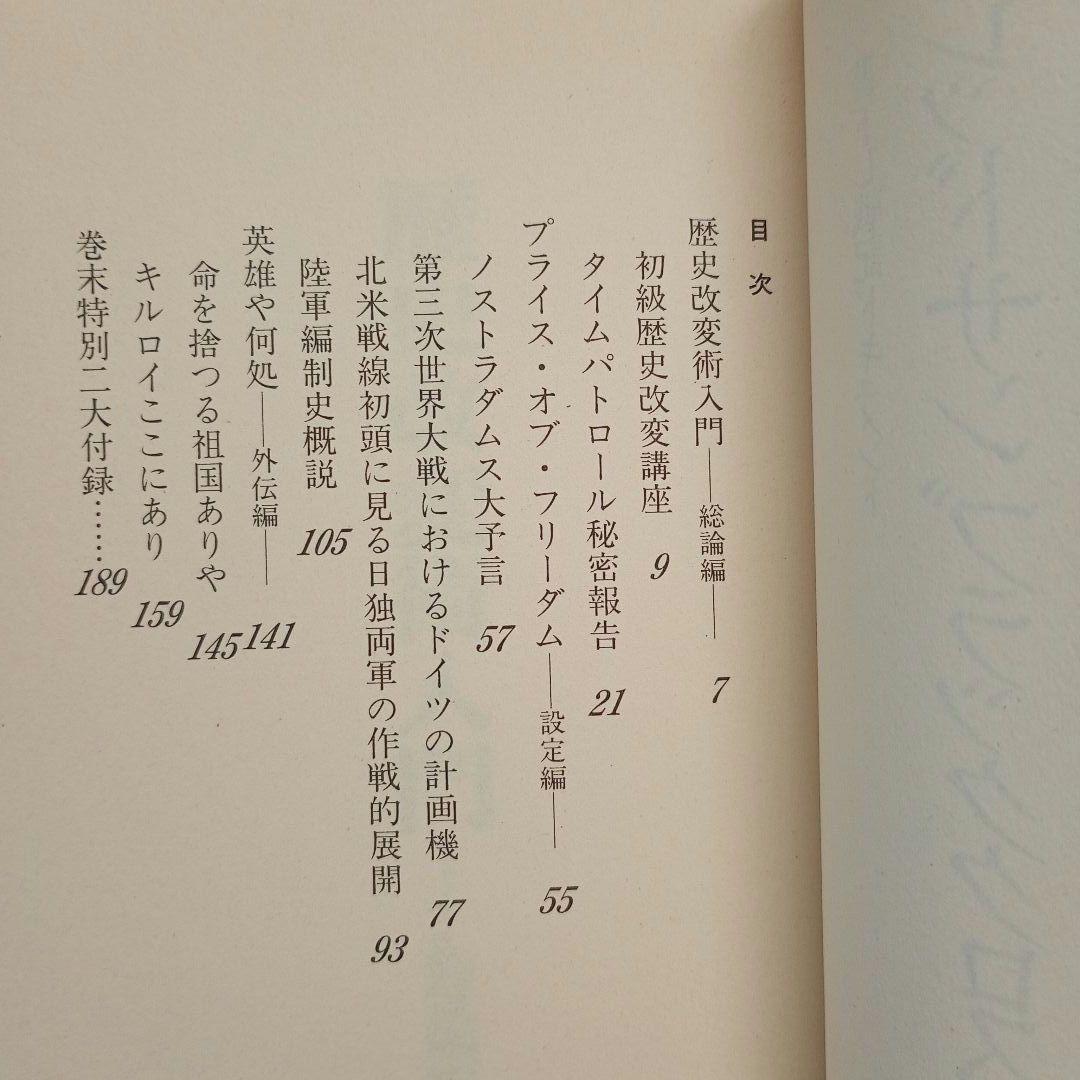 目次
歴史改変術入門──総論編── 7
初級歴史改変講座 9
タイムパトロール秘密報告 21
プライス・オブ・フリーダム──設定編── 55
ノストラダムス大予言 57
第三次世界大戦におけるドイツの計画機 77
北米戦線初頭に見る日独両軍の作戦的展開 93
陸軍編制史概説 105
英雄や何処──外伝編── 141
命を捨つる祖国ありや 145
キルロイここにあり 159
巻末特別二大付録…… 189